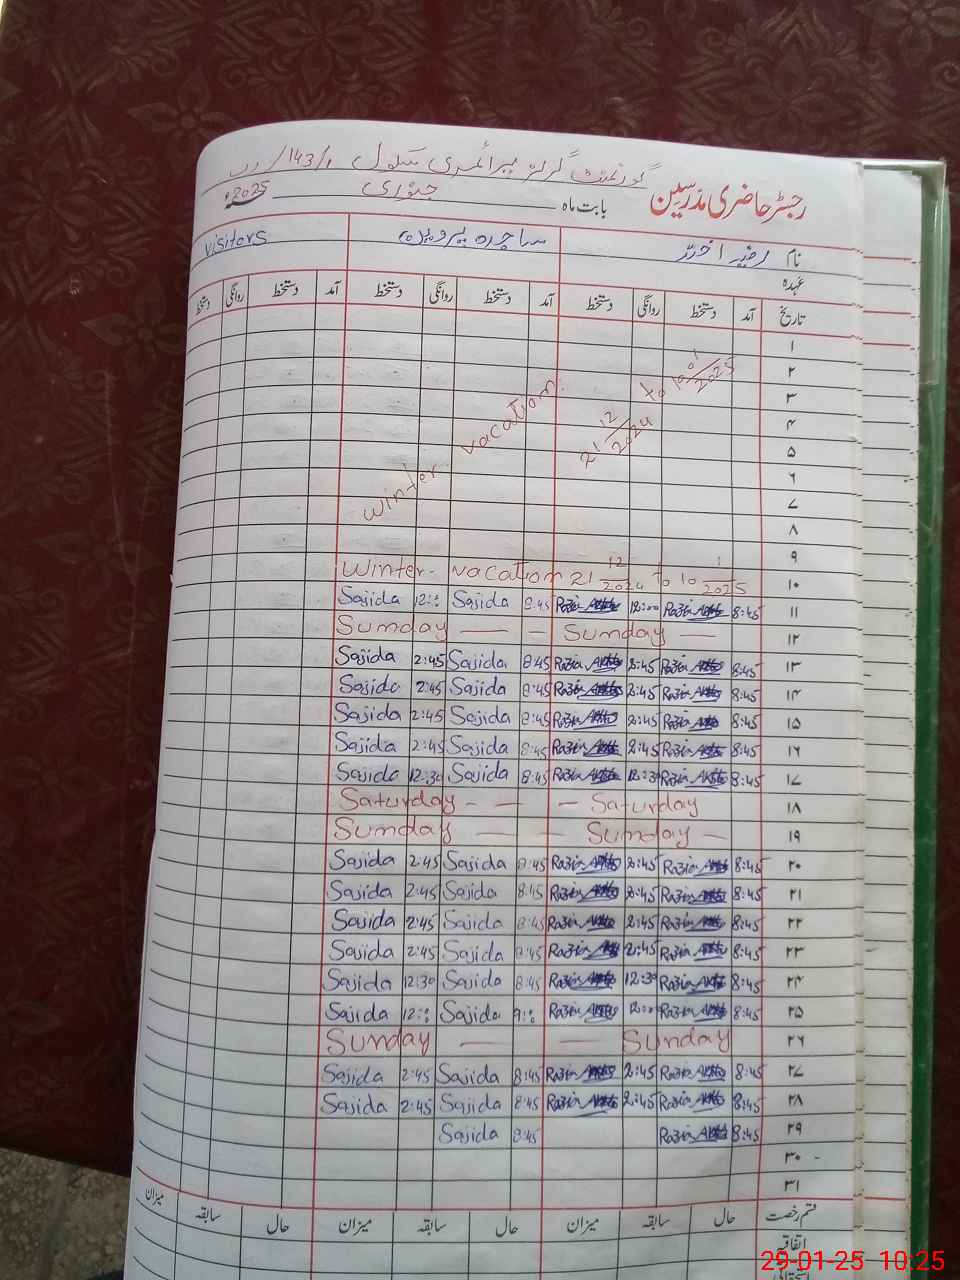 گورنمنٹ گرلز پرائمری سکول 143/ر ب
رجسٹر حاضری مدرسین بابت ماہ جنوری 2025ء
نام رضیہ اختر ساجدہ پروین visitors
عہدہ
تاریخ آمد دستخط روانگی دستخط آمد دستخط روانگی دستخط آمد دستخط روانگی دستخط
۱
۲
۳
۴
۵
۶
۷
۸
۹
winter vacation. 21 12/2024 to 10 01/2025
۱۰ winter vacation 21 12/2024 to 10 1/2025
۱۱ 8:45 Razia Akhter 12:00 Razia Akhter 8:45 Sajida 12:00 Sajida
۱۲ Sunday — — Sunday —
۱۳ 8:45 Razia Akhter 2:45 Razia Akhter 8:45 Sajida 2:45 Sajida
۱۴ 8:45 Razia Akhter 2:45 Razia Akhter 8:45 Sajida 2:45 Sajida
۱۵ 8:45 Razia Akhter 2:45 Razia Akhter 8:45 Sajida 2:45 Sajida
۱۶ 8:45 Razia Akhter 2:45 Razia Akhter 8:45 Sajida 2:45 Sajida
۱۷ 8:45 Razia Akhter 12:30 Razia Akhter 8:45 Sajida 12:30 Sajida
۱۸ Saturday - — — Saturday
۱۹ Sunday — — Sunday —
۲۰ 8:45 Razia Akhter 2:45 Razia Akhter 8:45 Sajida 2:45 Sajida
۲۱ 8:45 Razia Akhter 2:45 Razia Akhter 8:45 Sajida 2:45 Sajida
۲۲ 8:45 Razia Akhter 2:45 Razia Akhter 8:45 Sajida 2:45 Sajida
۲۳ 8:45 Razia Akhter 2:45 Razia Akhter 8:45 Sajida 2:45 Sajida
۲۴ 8:45 Razia Akhter 12:30 Razia Akhter 8:45 Sajida 12:30 Sajida
۲۵ 8:45 Razia Akhter 12:00 Razia Akhter 9:00 Sajida 12:00 Sajida
۲۶ Sunday — — Sunday
۲۷ 8:45 Razia Akhter 2:45 Razia Akhter 8:45 Sajida 2:45 Sajida
۲۸ 8:45 Razia Akhter 2:45 Razia Akhter 8:45 Sajida 2:45 Sajida
۲۹ 8:45 Razia Akhter 8:45 Sajida
۳۰
۳۱
قسم رخصت حال سابقہ میزان حال سابقہ میزان حال سابقہ میزان
اتفاقیہ
29-01-25 10:25